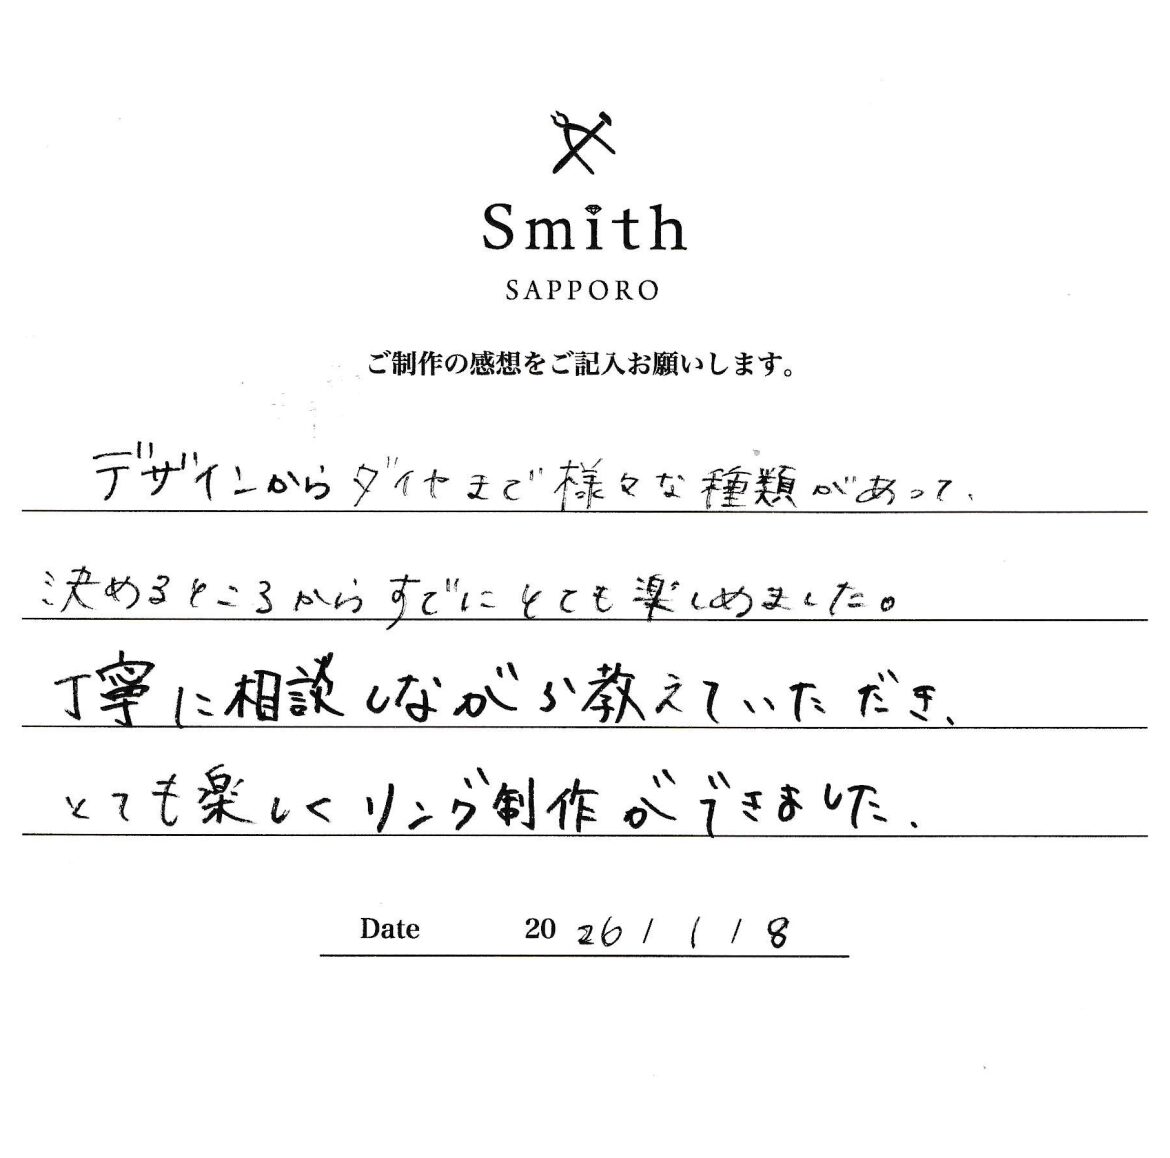 Smith
SAPPORO
ご制作の感想をご記入お願いします。
デザインからダイヤまで様々な種類があって、
決めるところからすでにとても楽しめました。
丁寧に相談しながら教えていただき、
とても楽しくリング制作ができました.
Date 2026/1/8